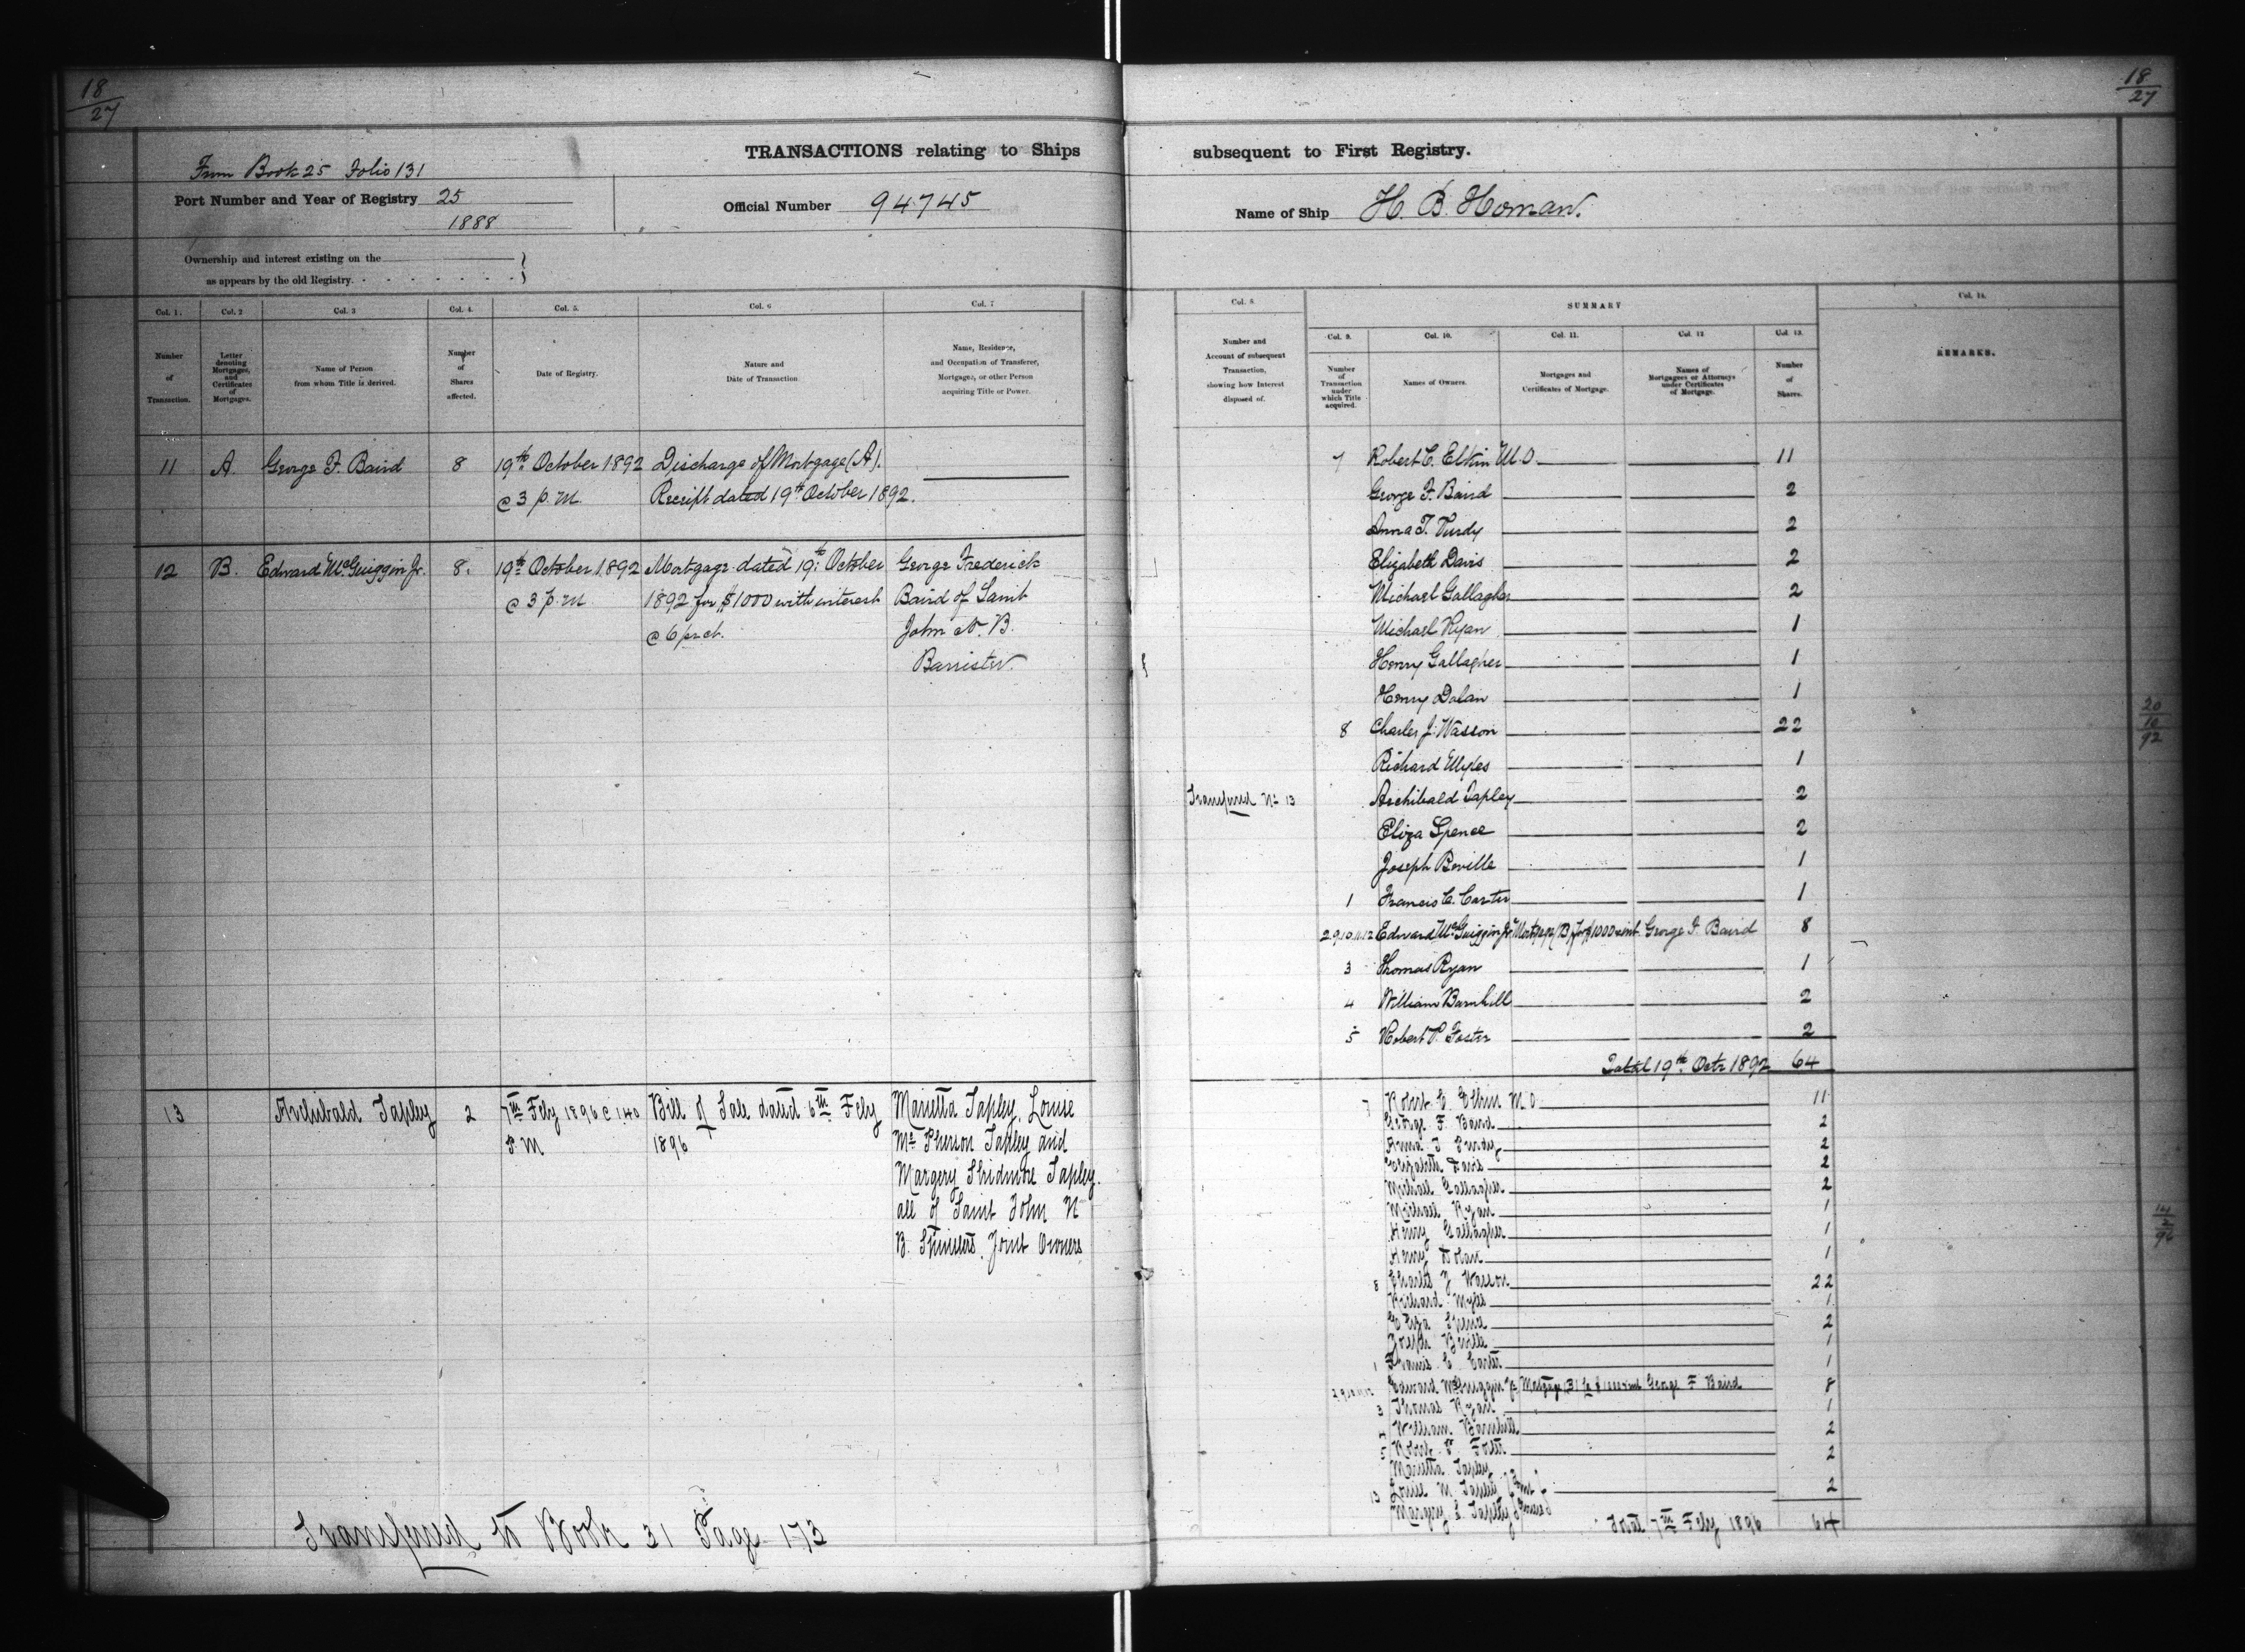 18
27
18
27
TRANSACTIONS relating to Ships
subsequent to First Registry.
From Book 25 Folio 131
Port Number and Year of Registry 25
1888
Official Number 94745
Name of Ship H. B. Homan.
Ownership and interest existing on the
as appears by the old Registry.
Col. 1.
Col. 2
Col. 3
Col. 4.
Col. 5.
Col. 6
Col. 7
Number
of
Transaction.
Letter
denoting
Mortgages,
and
Certificates
of
Mortgages.
Name of Person
from whom Title is derived.
Number
of
Shares
affected.
Date of Registry.
Nature and
Date of Transaction
Name, Residence,
and Occupation of Transferer,
Mortgagee, or other Person
acquiring Title or Power.
11 A. George F. Baird 8 19th October 1892 Discharge of Mortgage (A).
@ 3 p.m. Receipt dated 19th October 1892.
12 B. Edward McGuiggin Jr. 8. 19th October 1892 Mortgage dated 19th October George Frederick
@ 3 p.m 1892 for $1000 with interest Baird of Saint
@ 6 pr ct. John N. B.
Barrister.
13 Archibald Tapley 2 7th Feby 1896 @ 1.40 Bill of Sale dated 6th Feby Marietta Tapley, Louise
P.M 1896 Mc Pherson Tapley and
Margery Skidmore Tapley
all of Saint John N
B. Spinsters, Joint Owners
Transferred to Book 31 Page 173
Col. 8.
SUMMARY
Col. 14.
Number and
Account of subsequent
Transaction,
showing how Interest
disposed of.
Col. 9.
Col. 10.
Col. 11.
Col. 12
Col. 13.
Number
of
Transaction
under
which Title
acquired.
Names of Owners.
Mortgages and
Certificates of Mortgage.
Names of
Mortgagees or Attorneys
under Certificates
of Mortgage.
Number
of
Shares.
REMARKS.
7 Robert C. Elkin M.O. 11
George F. Baird 2
Anna T. Purdy 2
Elizabeth Davis 2
Michael Gallagher 2
Michael Ryan 1
Henry Gallagher 1
Henry Dolan 1
8 Charles J. Wasson 22
Richard Myles 1
Transferred No 13 Archibald Tapley 2
Eliza Spence 2
Joseph Beville 1
1 Francis C. Carter 1
2.9.10.11.12 Edward McGuiggin Jr. Mortgage (B) for $1000 & int. George F. Baird 8
3 Thomas Ryan 1
4 William Barnhill 2
5 Robert P. Foster 2
Total 19th Octr 1892 64
20
10
92
7 Robert C Elkin M O 11
George F. Baird 2
Anna T Purdy 2
Elizabeth Davis 2
Michael Gallagher 2
Michael Ryan 1
Henry Gallagher 1
Henry Dolan 1
8 Charles J Wasson 22
Richard Myles 1
Eliza Spence 2
Joseph Beville 1
1 Francis C Carter 1
2.9.10.11.12 Edward McGuiggin Jr Mortgage (B) George F Baird 8
3 Thomas Ryan 1
4 William Barnhill 2
5 Robert P. Foster 2
Marietta Tapley
13 Louise M Tapley Joint 2
Margery S Tapley Owners
Total 7th Feby 1896 64
14
2
96